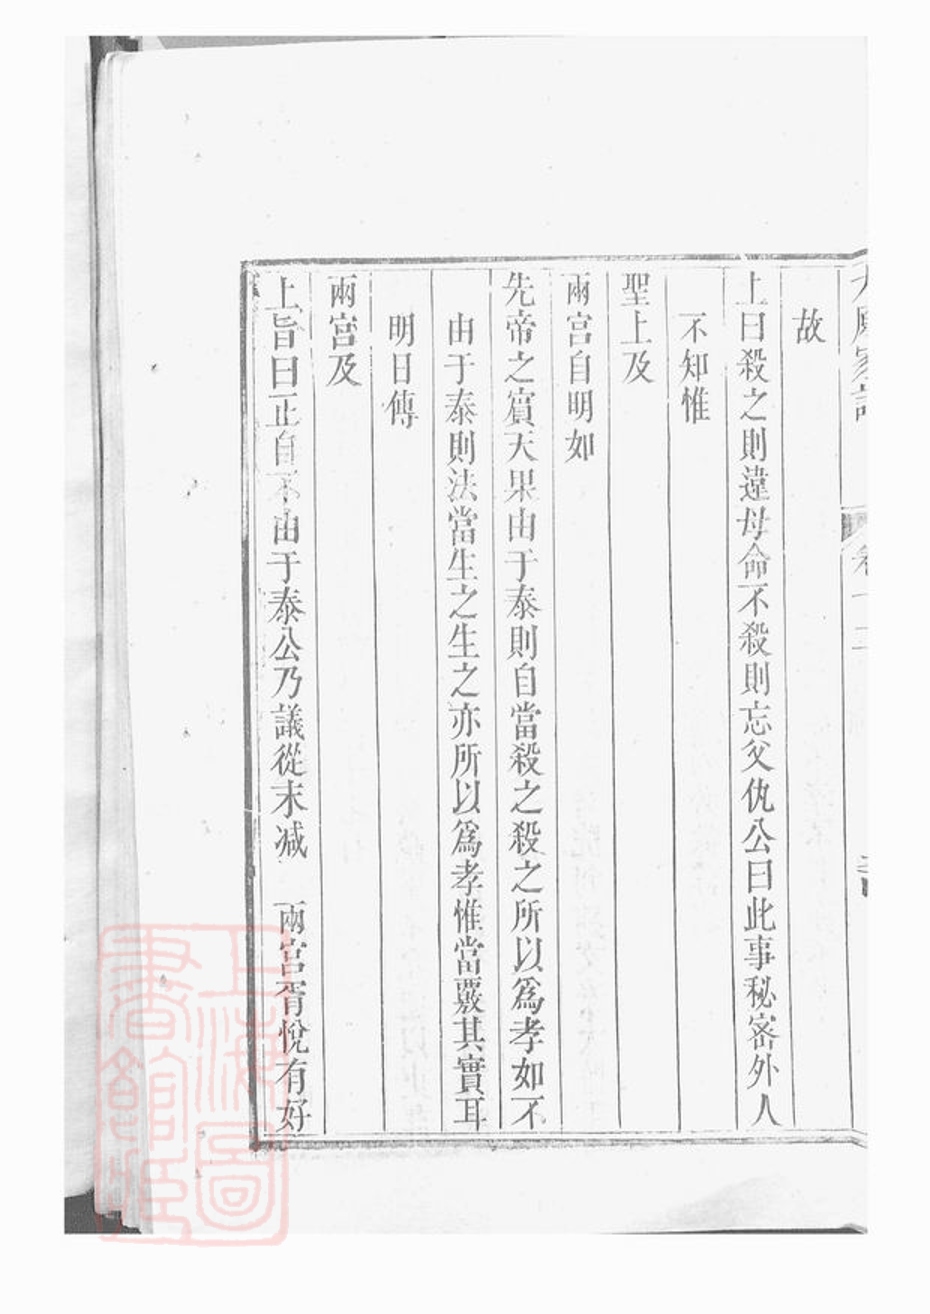 故
上曰殺之則違母命不殺則忘父仇公曰此事秘密外人
不知惟
聖上及
兩宮自明如
先帝之賔天果由于泰則自當殺之殺之所以爲孝如不
由于泰則法當生之生之亦所以爲孝惟當覈其實耳
明日傳
兩宮及
上旨曰正自不由于泰公乃議從末减 兩宮胥悅有好
上海圖書館藏